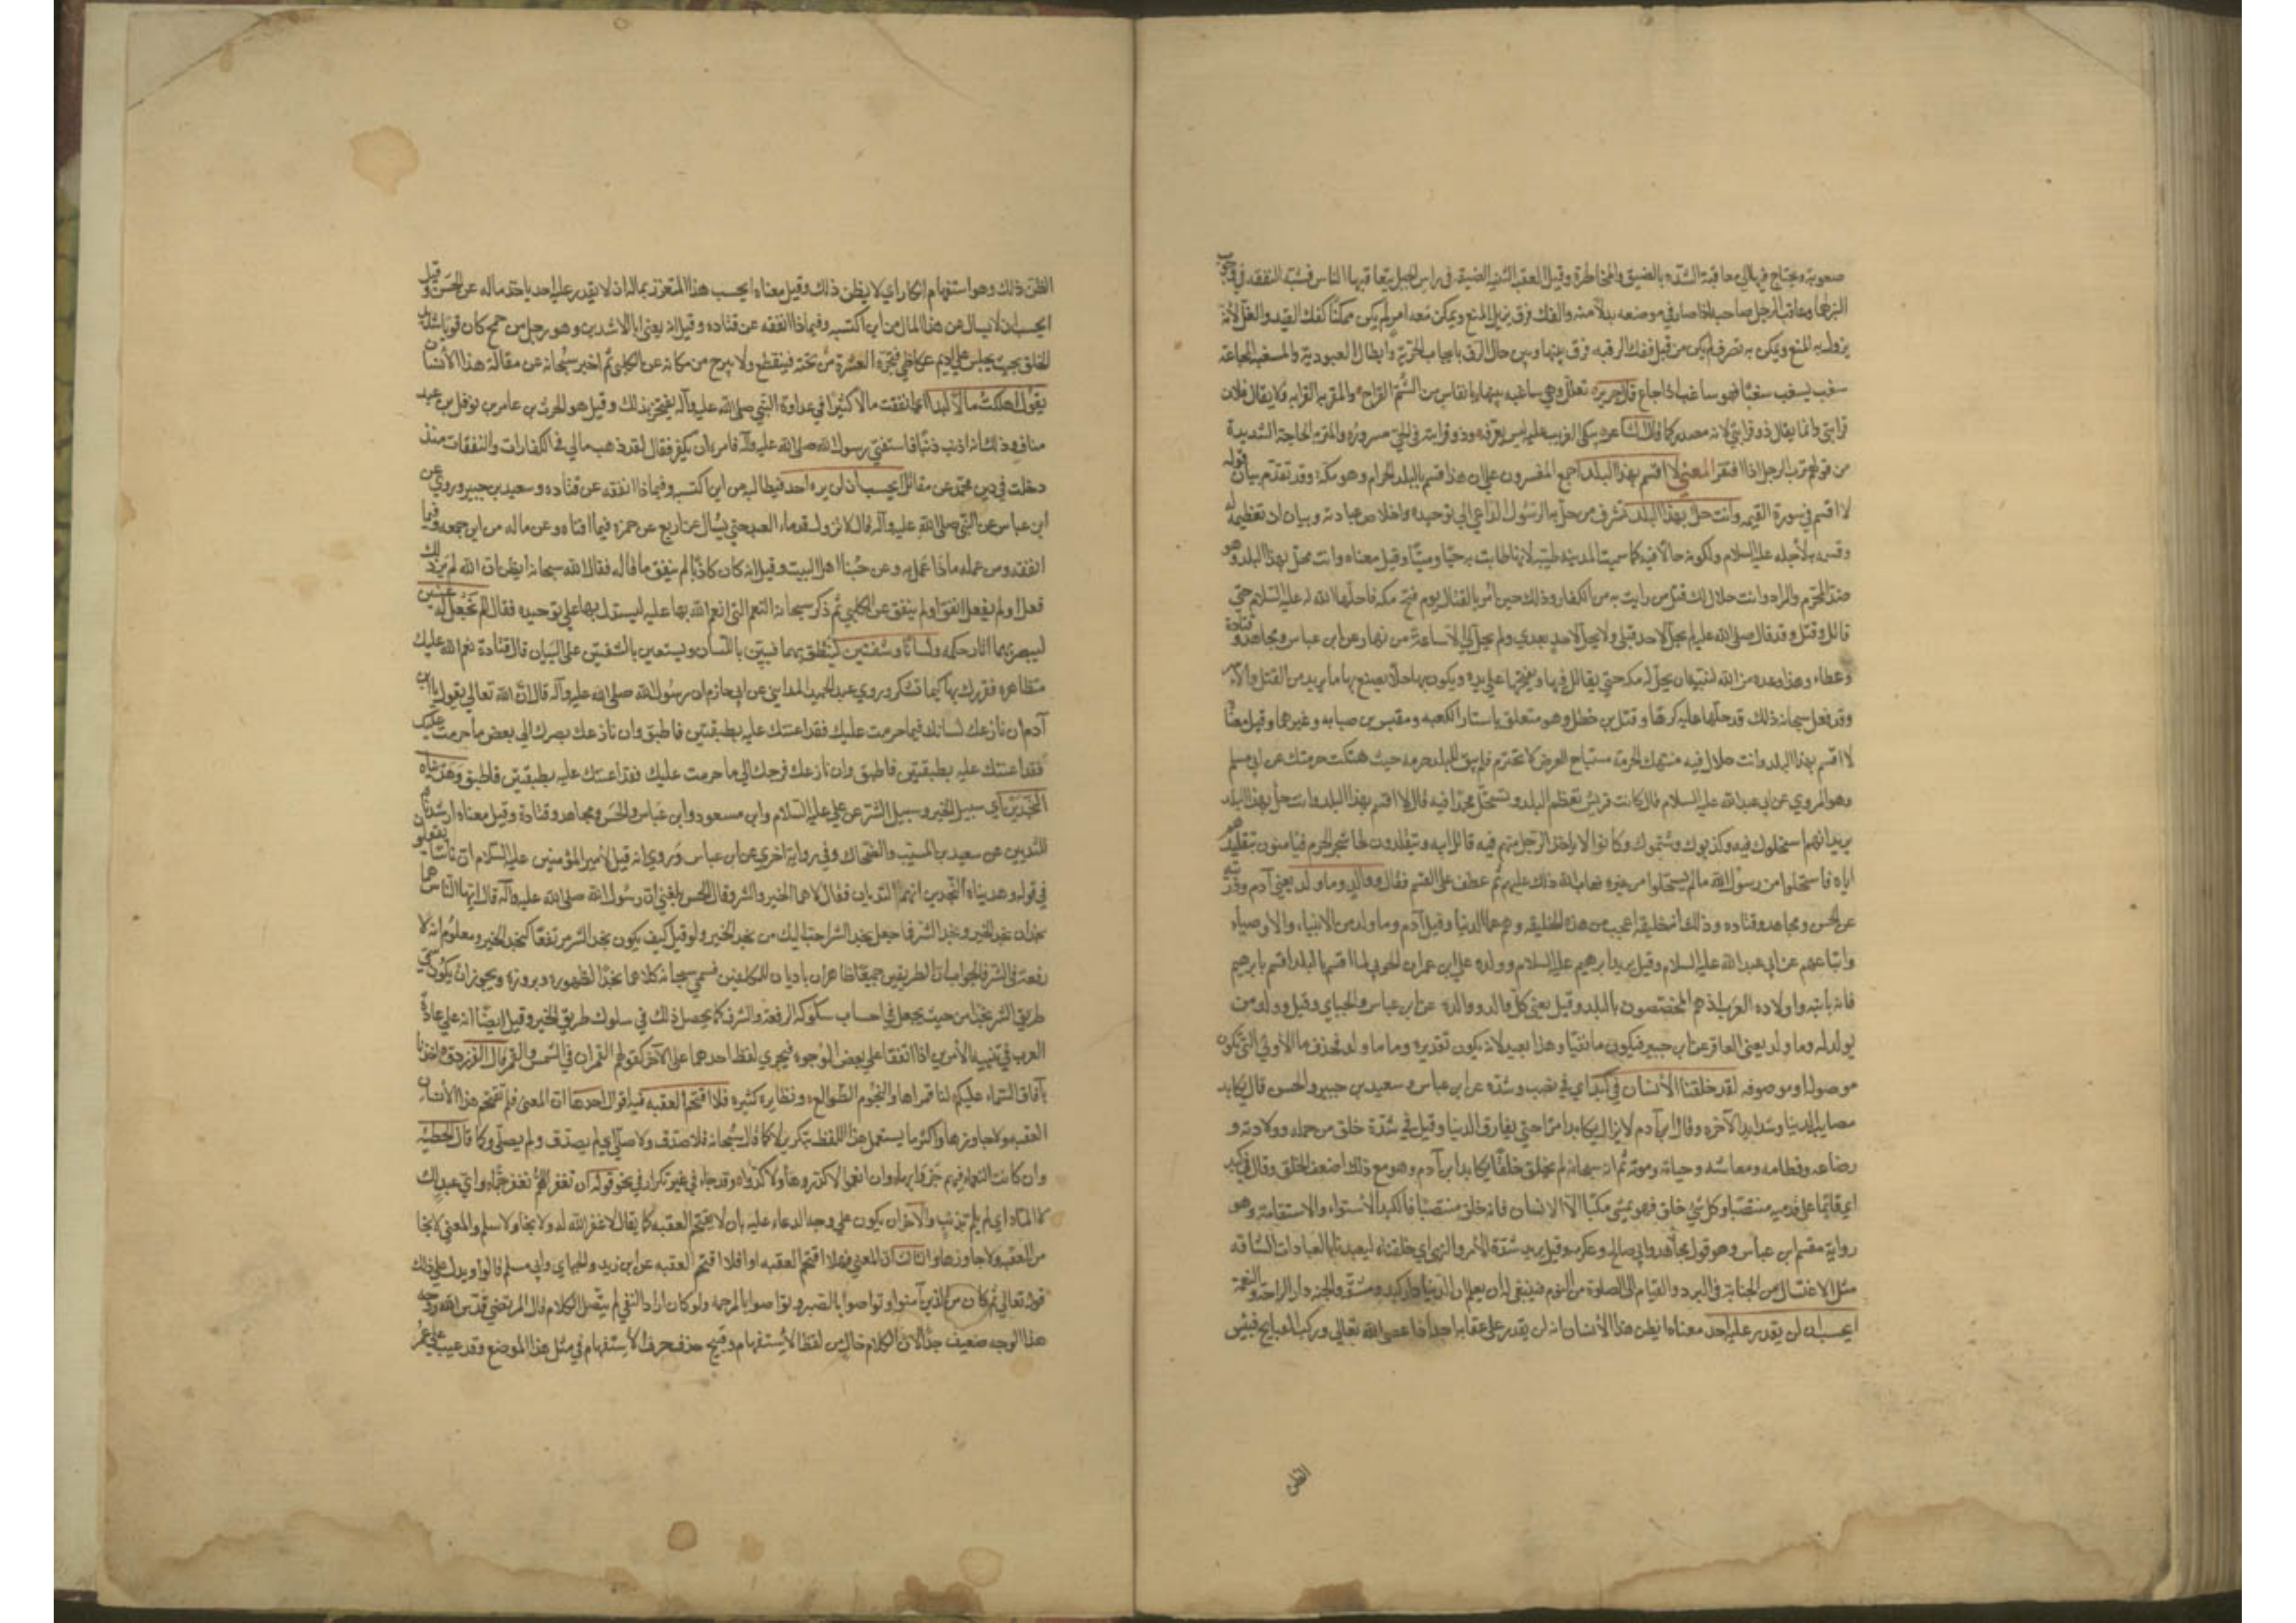 صعوبة ويحتاج فيه الي معاقبة الشدة بالضيق والمخاطرة وقيل العقبة الثنية الضيقة في راس الجبل يتعاقبها الناس فشبه النفقة في وجوه
البر بها وعاقب الرجل صاحبه اذا صار في موضعه بدلا منه والفك فرق يزيل المنع ويمكن معه امر لم يكن ممكنا كفك القيد والغل لانه
يزول به المنع ويمكن به تصرف لم يكن من قبل ففك الرقبة فرق بينها وبين حال الرق بايجاب الحرية وابطال العبودية والمسغبة المجاعة
سغب يسغب سغبا فهو ساغب اذا جاع قال جرير تعلل وهي ساغبة بنيها بانفاس من الشبم القراح والمقربة القرابة فلا يقال فلان
قرابتي وانما يقال ذو قرابتي لانه مصدر كما قال الشاعر يبكي الغريب عليه ليس يعرفه وذو قرابته في الحي مسرور والمتربة الحاجة الشديدة
من قولهم ترب الرجل اذا افتقر المعني لا اقسم بهذا البلد اجمع المفسرون علي ان هذا قسم بالبلد الحرام وهو مكة وقد تقدم بيان قوله
لا اقسم في سورة القيمة وانت حل بهذا البلد شرف من حل به الرسول الداعي الي توحيده واخلاص عبادته وبيان ان تعظيمه له
وقسمه به لأجله عليه السلام ولكونه حالا فيه كما سميت المدينة طيبة لانها طابت به حيا وميتا وقيل معناه وانت محل بهذا البلد وهو
ضد المحرم والمراد وانت حلال لك قتل من رايت به من الكفار وذلك حين أمر بالقتال يوم فتح مكة فاحلها الله له عليه السلام حتي
قاتل وقتل وقد قال صلي الله عليه لم يحل لاحد قبلي ولا يحل لاحد بعدي ولم يحل لي الا ساعة من نهار وعن ابن عباس ومجاهد وقتادة
وعطاء وهذا وعد من الله لنبيه ان يحل له مكة حتي يقاتل فيها ويفتحها علي يده ويكون بها حلا يصنع بها ما يريد من القتل والاسر
وقد فعل سبحانه ذلك قد حلها عليه كرها وقتل بن خطل وهو متعلق باستار الكعبة ومقيس بن صبابة وغيرهما وقيل معناه
لا اقسم بهذا البلد وانت حلال فيه منتهك الحرمة مستباح العرض لا تحترم فلم يبق للبلد حرمة حيث هتكت حرمتك عن ابي مسلم
وهو المروي عن ابي عبد الله عليه السلام قال كانت قريش تعظم البلد وتستحل محمدا فيه فقال لا اقسم بهذا البلد وانت حل بهذا البلد
يريد انهم استحلوك فيه وكذبوك وشتموك وكانوا لا ياخذ الرجل منهم فيه قاتل ابيه ويتقلدون لحا شجر الحرم فيأمنون بتقليدهم
اياه فاستحلوا من رسول الله ما لم يستحلوا من غيره فعاب الله ذلك عليهم ثم عطف علي القسم فقال ووالد وما ولد يعني آدم وذريته
عن الحسن ومجاهد وقتاده وذلك انه خليقة اعجب من هذه الخليقة وهم عمار الدنيا وقيل آدم وما ولد من الانبياء والاوصياء
واتباعهم عن ابي عبد الله عليه السلام وقيل يريد ابرهيم عليه السلام وولده عن ابي عمران الجوني لما اقسم بالبلد اقسم بابرهيم
فانه بانيه واولاده العرب اذ هم المختصون بالبلد وقيل يعني كل والد وولده عن ابن عباس والجبائي وقيل ووالد من
يولد له وما ولد يعني العاقر عن ابن جبير فيكون ما نفيا وهذا بعيد لانه يكون تقديره وما ما ولد فحذف ما الأولي التي تكون
موصولة او موصوفة لقد خلقنا الأنسان في كبد اي في نصب وشدة عن ابن عباس وسعيد بن جبير والحسن قال يكابد
مصايب الدنيا وشدايد الآخره وقال ابن آدم لا يزال يكابد امرا حتي يفارق الدنيا وقيل في شدة خلق من حمله وولادته و
رضاعه وفطامه ومعاشه وحياته وموته ثم انه سبحانه لم يخلق خلقا يكابد ما يكابد ابن آدم وهو مع ذلك اضعف الخلق وقال في كبد
اي قائما علي قدميه منتصبا وكل شي خلق فهو يمشي مكبا الا الانسان فانه خلق منتصبا فالكبد الاستواء والاستقامة وهو
رواية مقسم ابن عباس وهو قول مجاهد وابي صالح وعكرمة وقيل يريد شدة الأمر والنهي اي خلقناه ليعبدنا بالعبادات الشاقه
مثل الاغتسال من الجنابة في البرد والقيام الي الصلوة من النوم فينبغي له ان يعلم ان الدنيا دار كبد ومشقة والجنة دار الراحة والنعمة
ايحسب ان لن يقدر عليه احد معناه ايظن هذا الأنسان انه لن يقدر علي عقابه احد اذا عصي الله تعالي وركب القبايح فبئس
الظن
الظن ذلك وهو استفهام انكار اي لا يظن ذلك وقيل معناه ايحسب هذا المتعزز بماله ان لا يقدر عليه احد ياخذ ماله عن الحسن وقيل
ايحسب ان لا يسال عن هذا المال من اين اكتسبه وفيما ذا انفقه عن قتاده وقيل انه يعني ابا الاشدين وهو رجل من جمح كان قويا شديد
الخلق بحيث يجلس علي اديم عكاظي فتجره العشرة من تحته فينقطع ولا يبرح من مكانه عن الكلبي ثم اخبر سبحانه عن مقالة هذا الأنسان
يقول اهلكت مالا لبدا اي انفقت مالا كثيرا في عداوة النبي صلي الله عليه وآله يفتخر بذلك وقيل هو الحرث بن عامر بن نوفل بن عبد
مناف وذلك انه اذنب ذنبا فاستفتي رسول الله صلي الله عليه وآله فامره ان يكفر فقال لقد ذهب مالي في الكفارات والنفقات منذ
دخلت في دين محمد عن مقاتل ايحسب ان لم يره احد فيطالبه من اين اكتسبه وفيما ذا انفقه عن قتاده وسعيد بن جبير وروي عن
ابن عباس عن النبي صلي الله عليه وآله قال لا تزول قدما العبد حتي يسأل عن اربع عن عمره فيما افناه وعن ماله من اين جمعه وفيما
انفقه ومن عمله ماذا عمل به وعن حبنا اهل البيت وقيل انه كان كاذبا لم ينفق ما قاله فقال الله سبحانه ايظن ان الله لم ير ذلك
فعل او لم يفعل انفق او لم ينفق عن الكلبي ثم ذكر سبحانه النعم التي انعم الله بها عليه ليستدل بها علي توحيده فقال الم نجعل له عينين
ليبصر بهما آثار حكمه ولسانا وشفتين لينطق بهما فيبين باللسان ويستعين بالشفتين علي البيان قال قتادة نعم الله عليك
متظاهرة فقررك بها كيما تشكر وروي عبد الحميد المدايني عن ابي حازم ان رسول الله صلي الله عليه وآله قال ان الله تعالي يقول يا ابن
آدم ان نازعك لسانك فيما حرمت عليك فقد اعنتك عليه بطبقتين فاطبق وان نازعك بصرك الي بعض ما حرمت عليك
فقد اعنتك عليه بطبقتين فاطبق وان نازعك فرجك الي ما حرمت عليك فقد اعنتك عليه بطبقتين فاطبق وهديناه
النجدين اي سبيل الخير وسبيل الشر عن علي عليه السلام وابن مسعود وابن عباس والحسن ومجاهد وقتادة وقيل معناه ارشدناه
للثديين عن سعيد بن المسيب والضحاك وفي رواية اخري عن ابن عباس وروي انه قيل لأمير المؤمنين عليه السلام ان ناسا يقولون
في قوله وهديناه النجدين انهما الثديان فقال لا هما الخير والشر وقال الحسن بلغني ان رسول الله صلي الله عليه وآله قال ايها الناس هما
نجدان نجد الخير ونجد الشر فما جعل نجد الشر احب اليك من نجد الخير ولو قيل كيف يكون نجد الشر مرتفعا كنجد الخير ومعلوم انه لا
رفعة في الشر فالجواب ان الطريقين جميعا ظاهران باديان للمكلفين فسمي سبحانه كلاهما نجدا لظهوره وبروزه ويجوز ان يكون سمي
طريق الشر نجدا من حيث يجعل في اجتناب سلوكه الرفعة والشرف كما يحصل ذلك في سلوك طريق الخير وقيل ايضا انه علي عادة
العرب في تثنية الأمرين اذا اتفقا علي بعض الوجوه فيجري لفظ احدهما علي الآخر كقولهم القمران في الشمس والقمر قال الفرزدق اخذنا
بآفاق السماء عليكم لنا قمراها والنجوم الطوالع ونظايره كثيره فلا اقتحم العقبه فيه اقوال احدها ان المعني فلم يقتحم هذا الأنسان
العقبة ولا جاوزها واكثر ما يستعمل هذا اللفظ بتكرير لا كما قال سبحانه فلا صدق ولا صلي اي لم يصدق ولم يصلي وكما قال الحطيئة
وان كانت النعماء فيهم جزوا بها وان انعموا لا كدروها ولا كدوا وقد جاء في غير تكرار في نحو قوله ان تغفر اللهم تغفر جما واي عبد لك
لا الما اي لم يلم بذنب والآخر ان يكون علي وجه الدعاء عليه بان لا يقتحم العقبه كما يقال لا غفر الله له ولا نجا ولا سلم والمعني لا نجا
من العقبه ولا جاوزها والثالث ان المعني فهلا اقتحم العقبه او افلا اقتحم العقبه عن ابن زيد والجبائي وابي مسلم قالوا ويدل علي ذلك
قوله تعالي ثم كان من الذين آمنوا وتواصوا بالصبر وتواصوا بالمرحمة ولو كان اراد النفي لم يتصل الكلام قال المرتضي قدس الله روحه
هذا الوجه ضعيف جدا لان الكلام خال من لفظ الأستفهام وقبيح حذف حرف الأستفهام في مثل هذا الموضع وقد عيب علي عمر